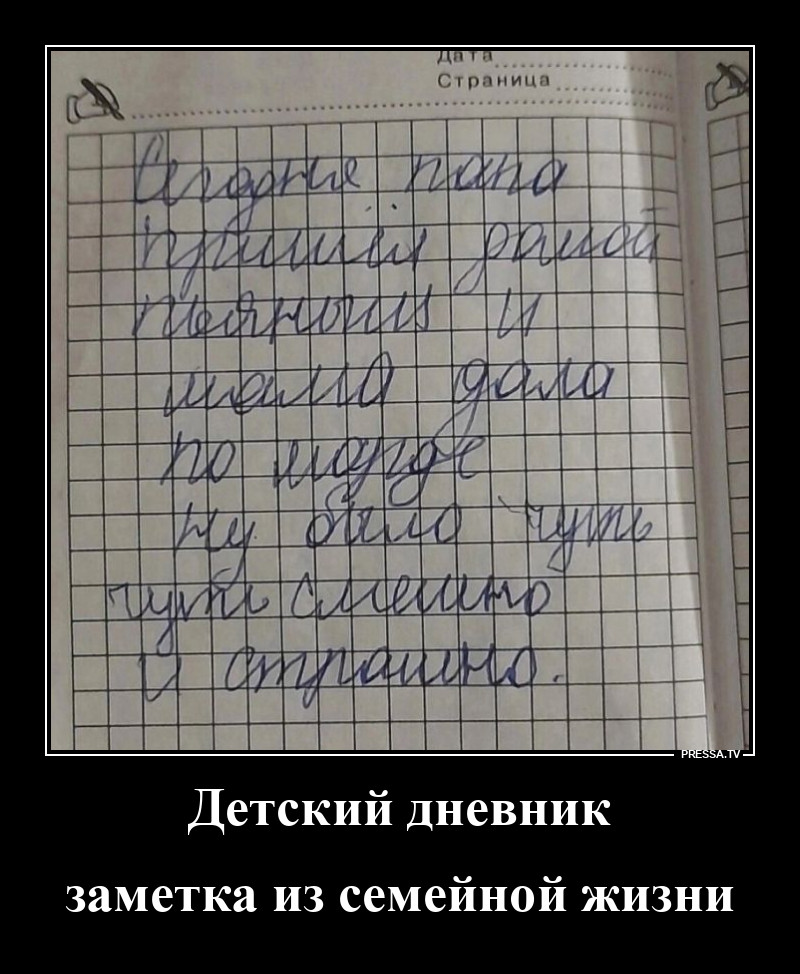 Дата
Страница
Сегодня папа
пришёл домой
пьяныш и
мама дала
по морде
ну было чуть
чуть смешно
и страшно.
PRESSA.TV
Детский дневник
заметка из семейной жизни